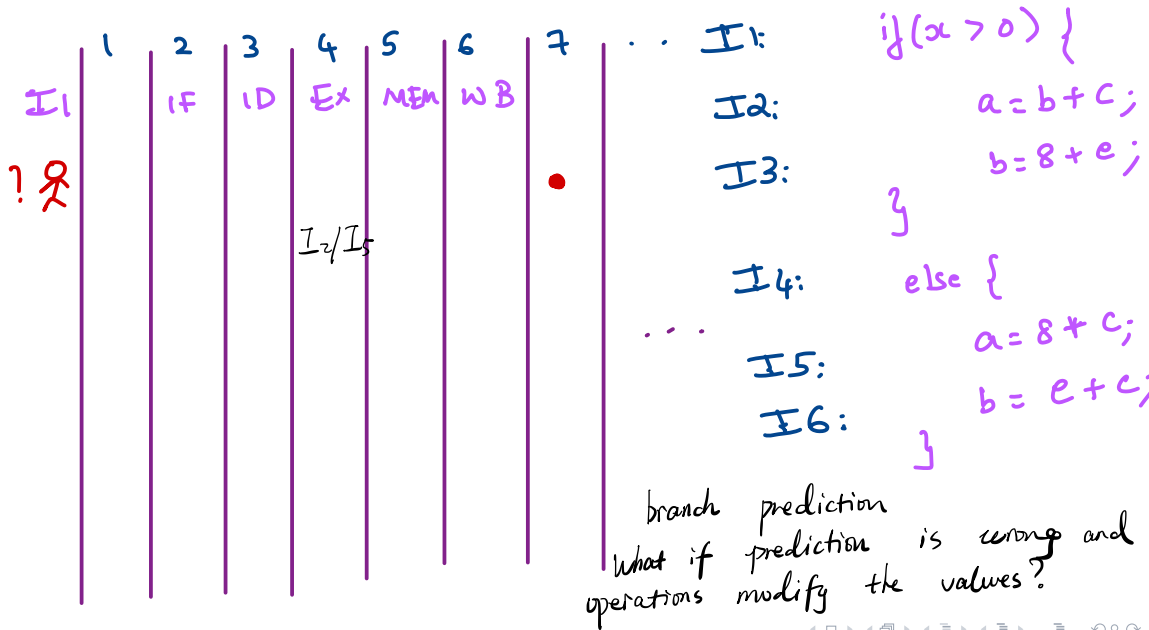 1 2 3 4 5 6 7 . .
I1 IF ID EX MEM WB
?
I2/I5
I1: if(x > 0) {
I2: a = b + c;
I3: b = 8 + e;
}
I4: else {
. . .
a = 8 * c;
I5:
b = e + c;
I6:
}
branch prediction
what if prediction is wrong and
operations modify the values?